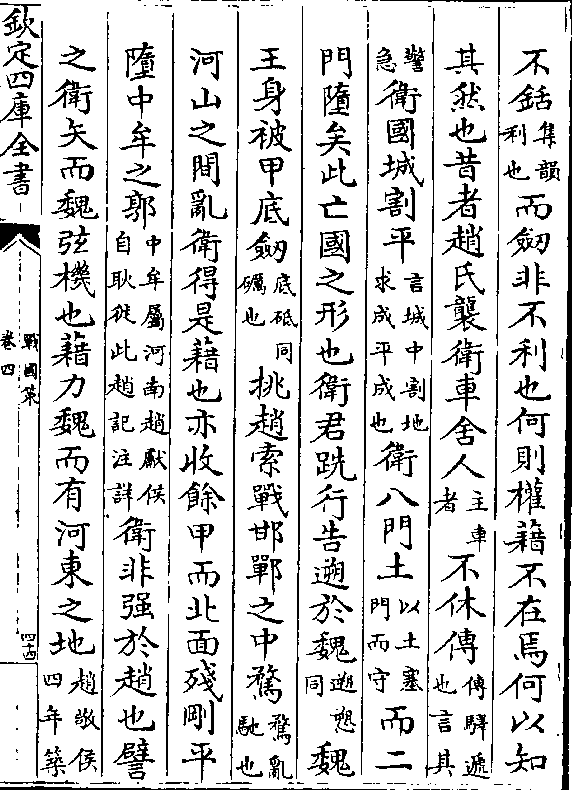 不銛集韻利也而劒非不利也何則權藉不在焉何以知
其然也昔者趙氏襲衛車舍人主車者不休傳傳驛遞也言其
警急衛國城割平言城中割地求成平成也衛八門土以土塞門而守而二
門墮矣此亡國之形也衛君跣行告遡於魏遡愬同魏
王身被甲底劒底砥同礪也挑趙索戰邯鄲之中騖騖亂馳也
河山之間亂衛得是藉也亦收餘甲而北面殘剛平
墮中牟之郭中牟屬河南趙獻侯自耿徙此趙記注詳衛非强於趙也譬
之衛矢而魏弦機也藉力魏而有河東之地趙敬侯四年築
欽定四庫全書
戰國策
卷四
四十四